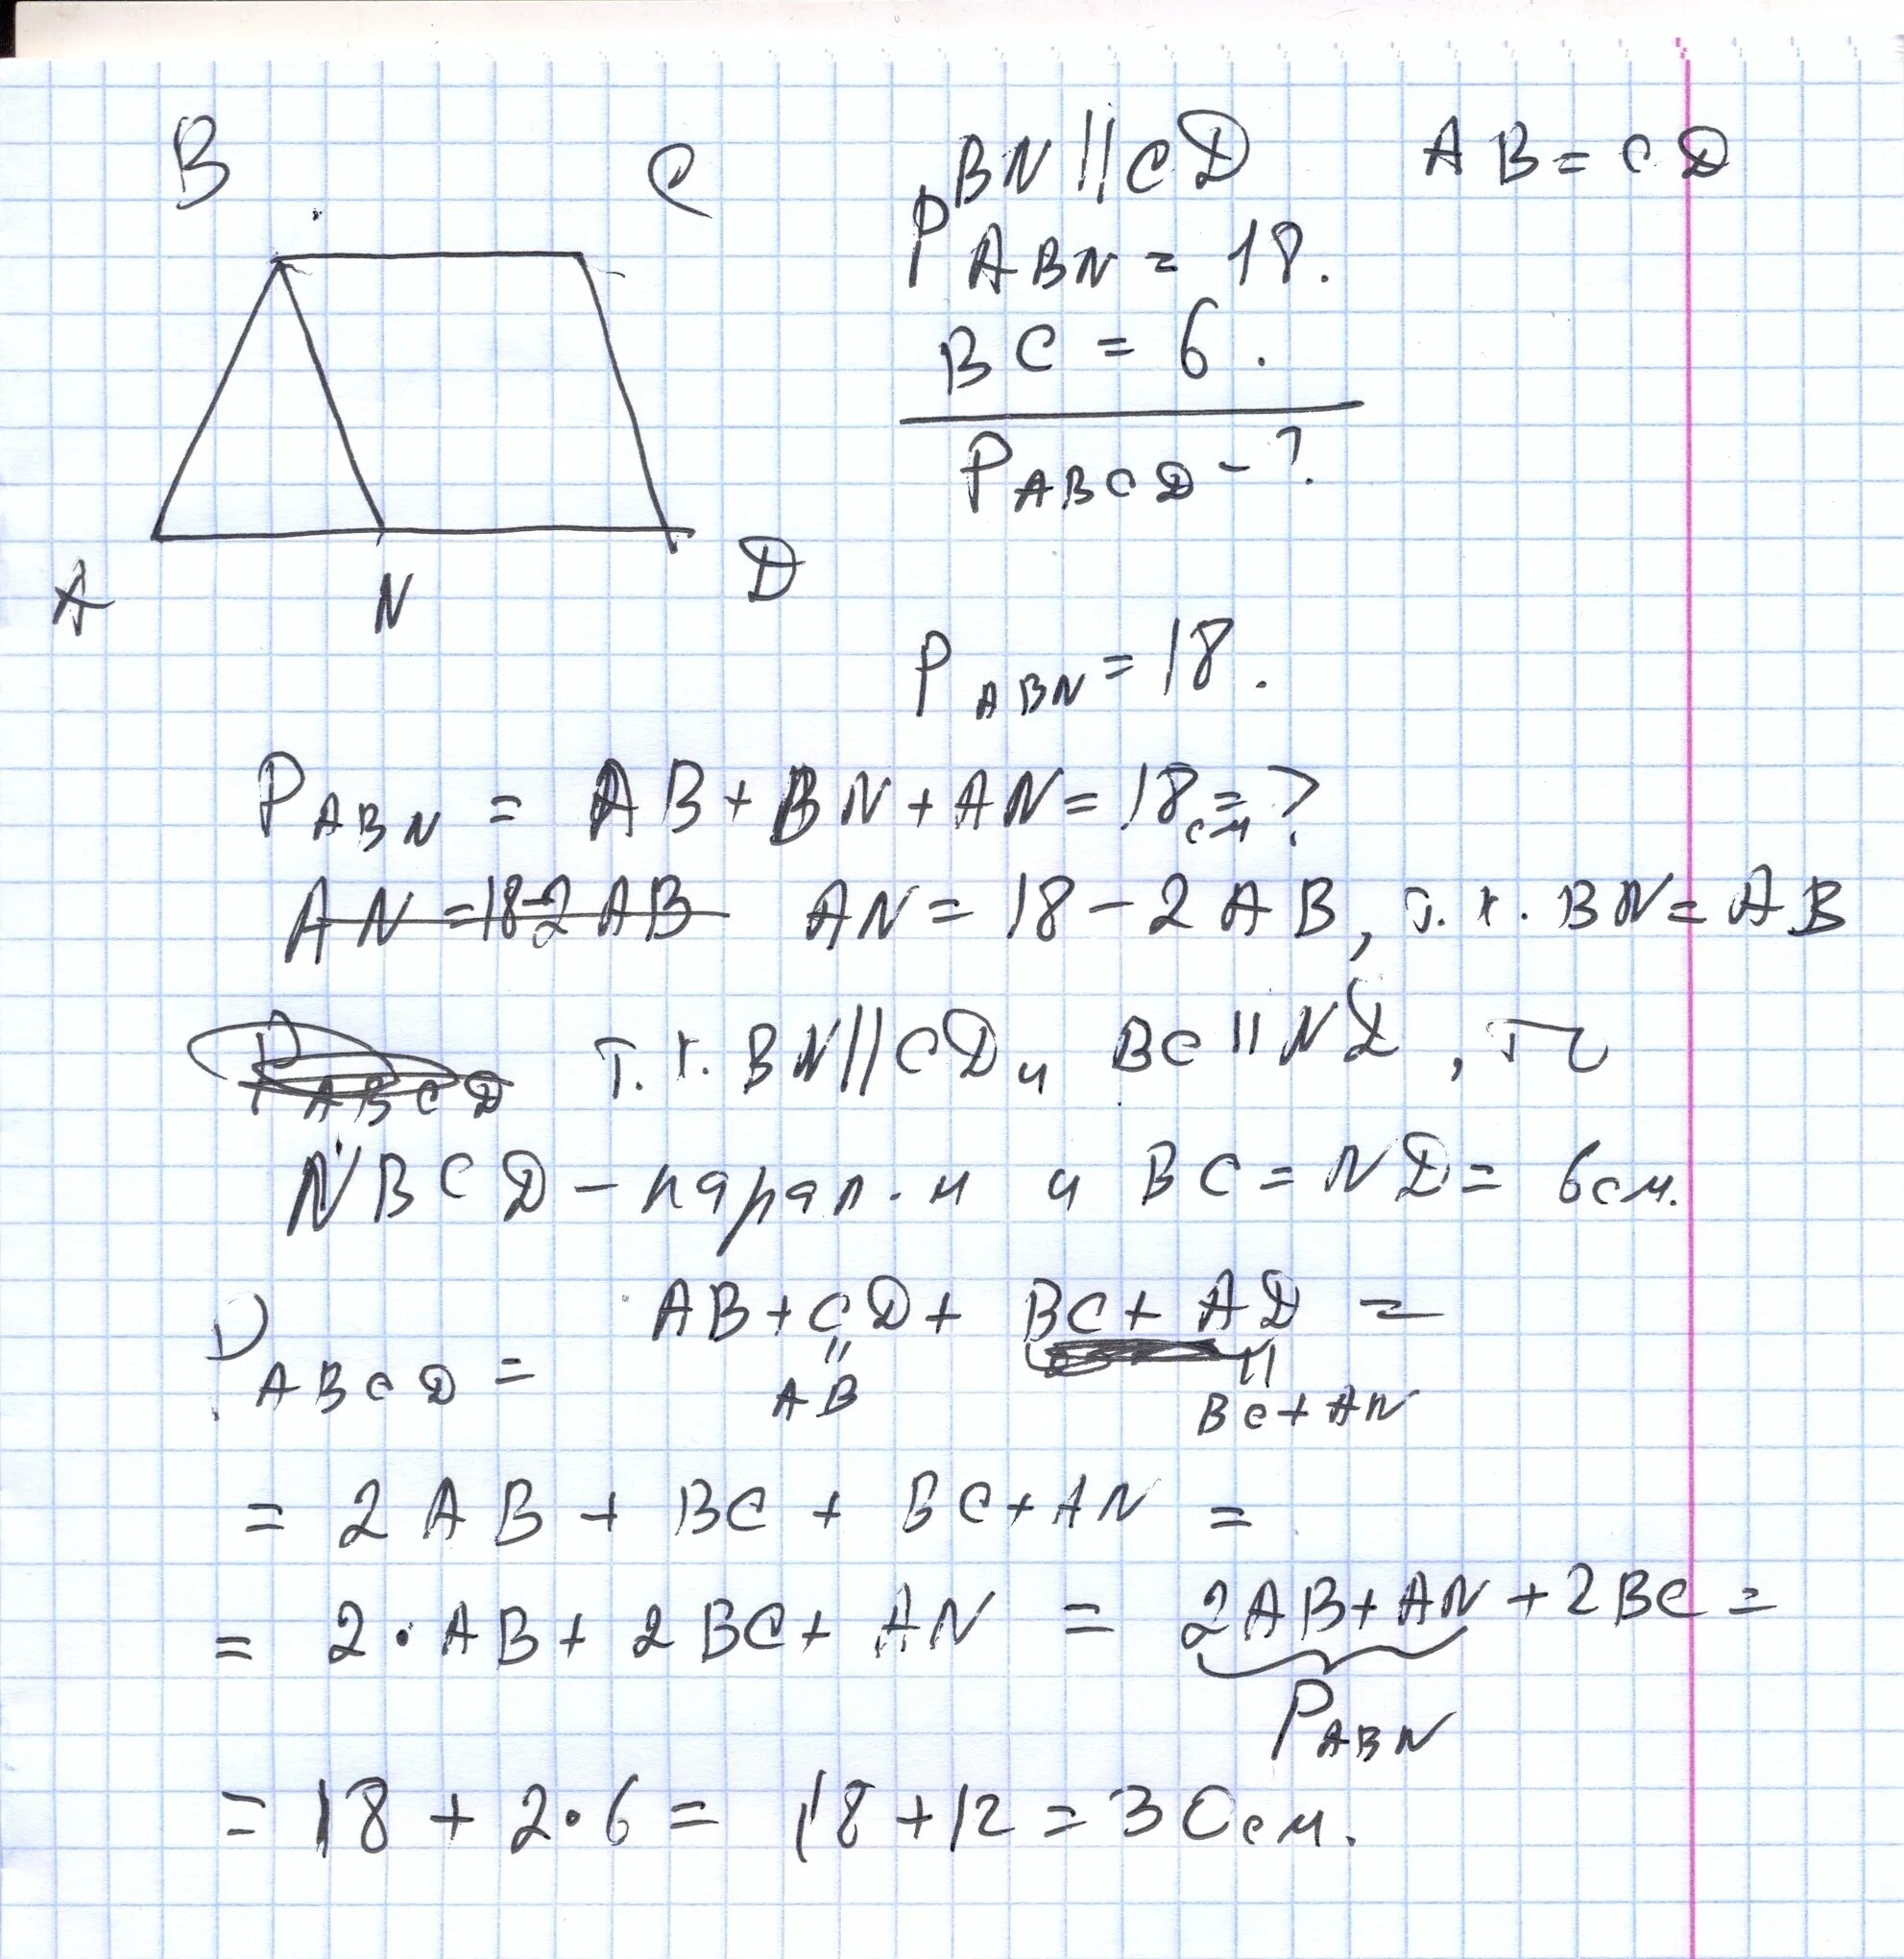 B C
BN || CD AB = CD
P ABN = 18.
BC = 6.
P ABCD - ?
A N D
P ABN = 18.
P ABN = AB + BN + AN = 18 см = ?
AN = 18 - 2AB AN = 18 - 2AB, т.к. BN = AB
P ABCD т.к. BN || CD и BC || ND, то
NBCD - парал-м и BC = ND = 6 см.
P ABCD = AB + CD + BC + AD =
" AB " BC + AN
= 2AB + BC + BC + AN =
= 2 · AB + 2BC + AN = 2AB + AN + 2BC =
P ABN
= 18 + 2 · 6 = 18 + 12 = 30 см.